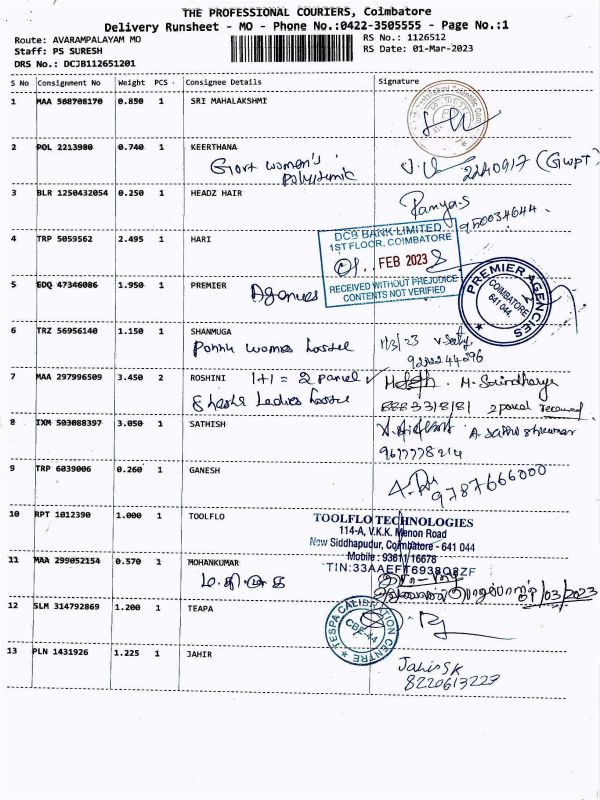 THE PROFESSIONAL COURIERS, Coimbatore
Delivery Runsheet - MO - Phone No.:0422-3505555 - Page No.:1
Route: AVARAMPALAYAM MO
RS No.: 1126512
Staff: PS SURESH
RS Date: 01-Mar-2023
DRS No.: DCJB112651201
S No Consignment No Weight PCS Consignee Details Signature
1 MAA 508708170 0.850 1 SRI MAHALAKSHMI
2 POL 2213980 0.740 1 KEERTHANA
Govt women's
2240917 (GWPT)
3 BLR 1250432054 0.250 1 HEADZ HAIR
Ramya.S
950034644
4 TRP 5059562 2.495 1 HARI
DCB BANK LIMITED
1ST FLOOR, COIMBATORE
01.. FEB 2023
RECEIVED WITHOUT PREJUDICE
CONTENTS NOT VERIFIED
5 EDQ 47346086 1.950 1 PREMIER
PREMIER AGENCIES
COIMBATORE
641 044.
6 TRZ 56956140 1.150 1 SHANMUGA
1/3/23
7 MAA 297996509 3.450 2 ROSHINI 1+1 = 2 parcel
Ladies
8883318181 2 parcel received
8 IXM 503088397 3.050 1 SATHISH
9677778214
9 TRP 6039006 0.260 1 GANESH
9787666000
10 RPT 1012390 1.000 1 TOOLFLO
TOOLFLO TECHNOLOGIES
114-A, V.K.K. Menon Road
New Siddhapudur, Coimbatore - 641 044
Mobile : 93611 16678
TIN:33AAEFT6938Q8ZF
11 MAA 299052154 0.570 1 MOHANKUMAR
01/03/2023
12 SLM 314792869 1.200 1 TEAPA
TESPA CALIBRATION CENTRE
CBE-44
13 PLN 1431926 1.225 1 JAHIR
Jahir SK
8220613227